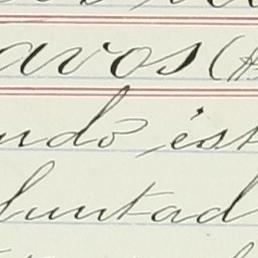 avos (
ndo est
luntad